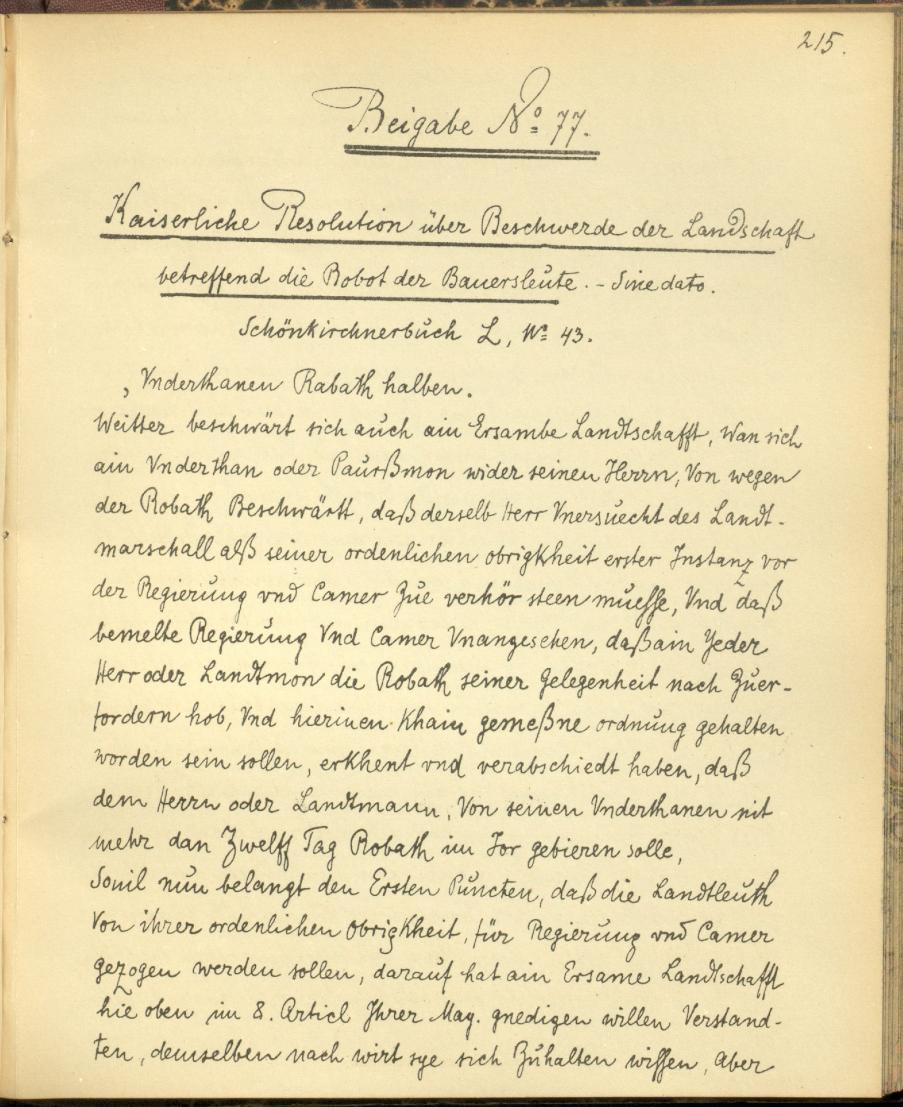 215.
Beigabe No 77.
Kaiserliche Resolution über Beschwerde der Landschaft
betreffend die Robot der Bauersleute. - Sine dato.
Schönkirchnerbuch L, No 43.
„Vnderthanen Rabath halben.
Weitter beschwärt sich auch ain Ersambe Landtschafft, Wan sich
ain Vnderthan oder Paurßmon wider seinen Herrn, Von wegen
der Robath Beschwärtt, daß derselb Herr Vnersuecht des Landt-
marschall alß seiner ordenlichen obrigkheit erster Instanz vor
der Regierung vnd Camer Zue verhör steen muesse, Vnd daß
bemelte Regierung Vnd Camer Vnangesehen, daß ain Yeder
Herr oder Landtmon die Robath seiner Gelegenheit nach Zuer-
fordern hob, Vnd hierinen Khain gemeßne ordnung gehalten
worden sein sollen, erkhent vnd verabschiedt haben, daß
dem Herrn oder Landtmann, Von seinen Vnderthanen nit
mehr dan Zwelff Tag Robath im Jor gebieren solle,
Souil nun belangt den Ersten Puncten, daß die Landtleuth
Von ihrer ordenlichen Obrigkheit, für Regierung vnd Camer
gezogen werden sollen, darauf hat ain Ersame Landtschafft
hie oben im 8. Articl Ihrer May. gnedigen willen Verstand-
ten, demselben nach wirt sye sich Zuhalten wissen, Aber